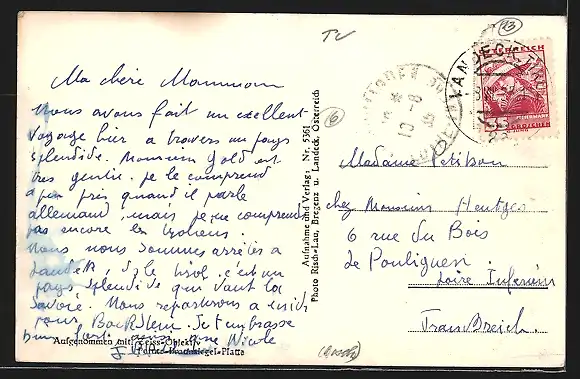 Ma chère Mamman
Nous avons fait un excellent
voyage hier a travers un pays
splendide. Monsieur Gold est
tres gentil. je le comprend
a peu près quand il parle
allemand, mais je ne comprend
pas encore les
Nous nous sommes arrivés a
Landeck, ds le tirol. c'est un
pays splendide qui vaut la
Savoie. Nous repartirons a midi
pour Je t'embrasse
bien fort Nicole
Aufgenommen mit Zeiss-Objektiv
Perutz-Braunsiegel-Platte
Aufnahme und Verlag: Nr. 5361
Photo Risch-Lau, Bregenz u. Landeck, Österreich
TV
6
13
LANDECK
ÖSTERREICH
STEIERMARK
GROSCHEN
Madame Petitbon
chez Monsieur
6 rue du Bois
de Pouliguen
Loire Inferieure
Frankreich